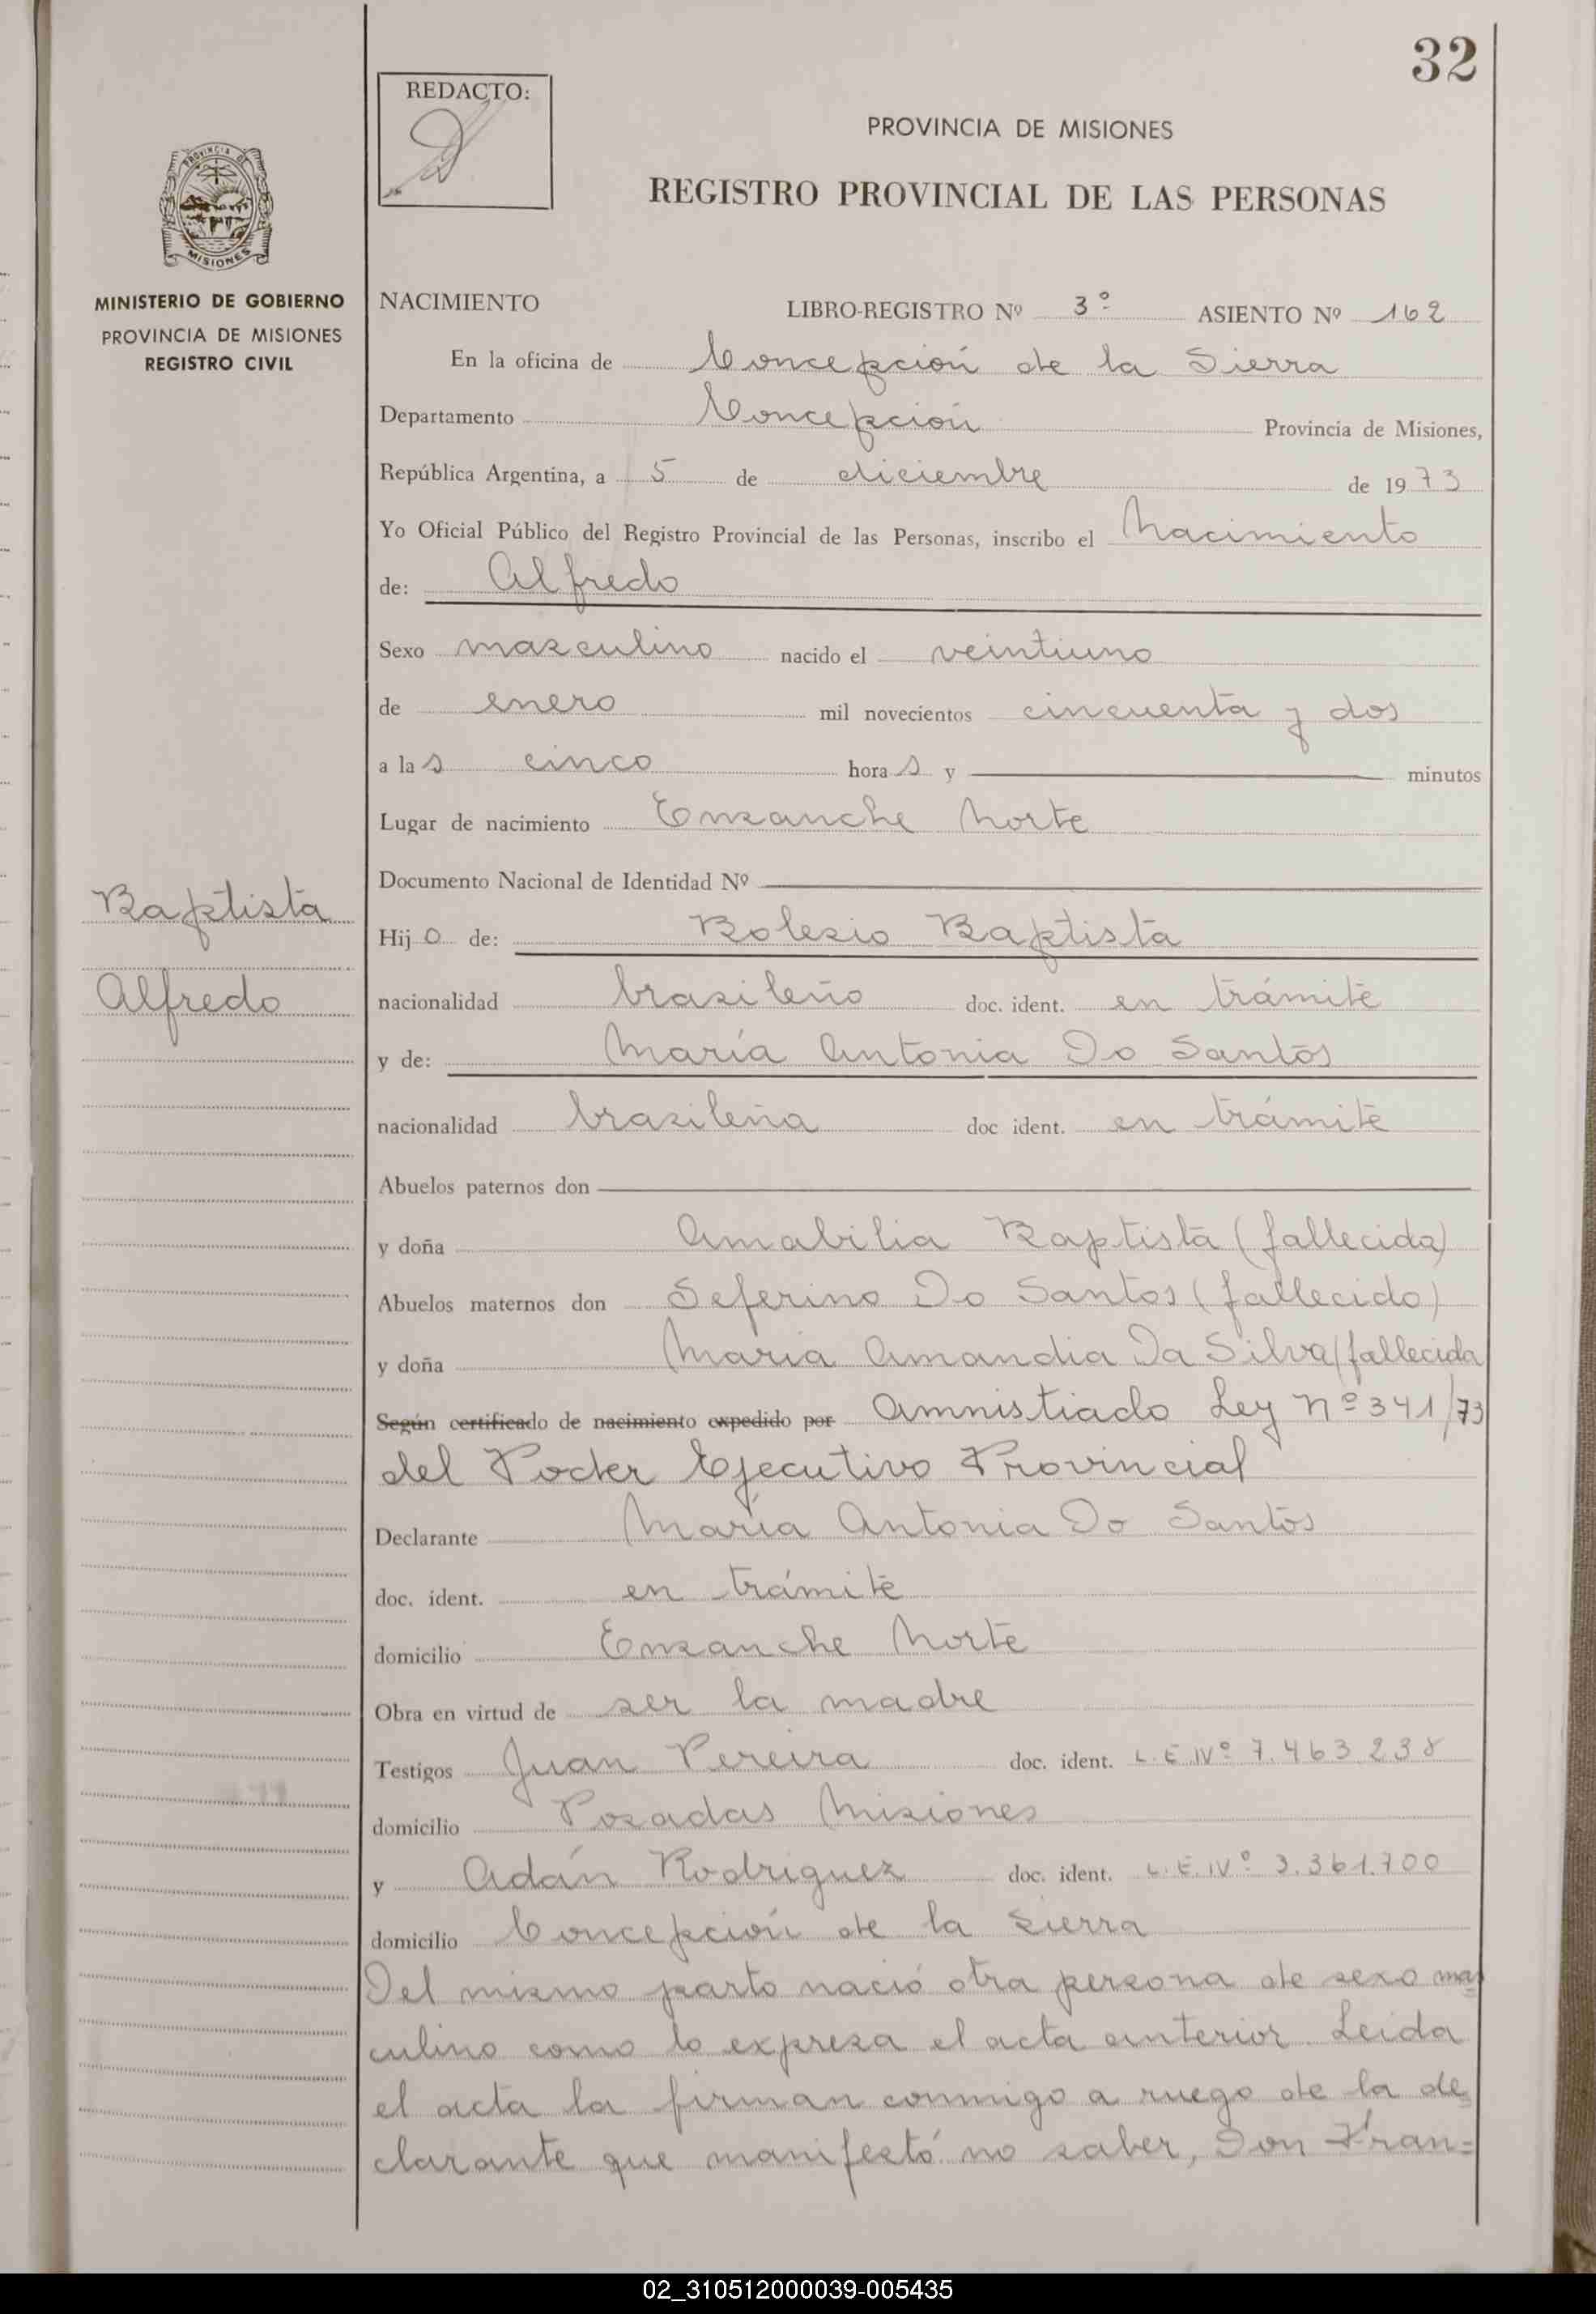 32
REDACTO:
PROVINCIA DE MISIONES
REGISTRO PROVINCIAL DE LAS PERSONAS
PROVINCIA DE
MISIONES
MINISTERIO DE GOBIERNO
PROVINCIA DE MISIONES
REGISTRO CIVIL
NACIMIENTO LIBRO-REGISTRO Nº 3º ASIENTO Nº 162
En la oficina de Concepción de la Sierra
Departamento Concepción Provincia de Misiones,
República Argentina, a 5 de diciembre de 1973
Yo Oficial Público del Registro Provincial de las Personas, inscribo el Nacimiento
de: Alfredo
Sexo masculino nacido el veintiuno
de enero mil novecientos cincuenta y dos
a las cinco horas y minutos
Lugar de nacimiento Ensanche Norte
Documento Nacional de Identidad Nº
Baptista
Alfredo
Hijo de: Bolesio Baptista
nacionalidad brasileño doc. ident. en trámite
y de: María Antonia Do Santos
nacionalidad brasileña doc ident. en trámite
Abuelos paternos don
y doña Amabilia Baptista (fallecida)
Abuelos maternos don Seferino Do Santos (fallecido)
y doña María Amandia Da Silva (fallecida
Según certificado de nacimiento expedido por Amnistiado Ley nº 341/73
del Poder Ejecutivo Provincial
Declarante María Antonia Do Santos
doc. ident. en trámite
domicilio Ensanche Norte
Obra en virtud de ser la madre
Testigos Juan Pereira doc. ident. L.E.Nº 7.463.238
domicilio Posadas Misiones
y Adán Rodriguez doc. ident. L.E.Nº 3.361.700
domicilio Concepción de la Sierra
Del mismo parto nació otra persona de sexo mas
culino como lo expresa el acta anterior. Leida
el acta la firman conmigo a ruego de la de
clarante que manifestó no saber, Don Fran=
02_310512000039-005435